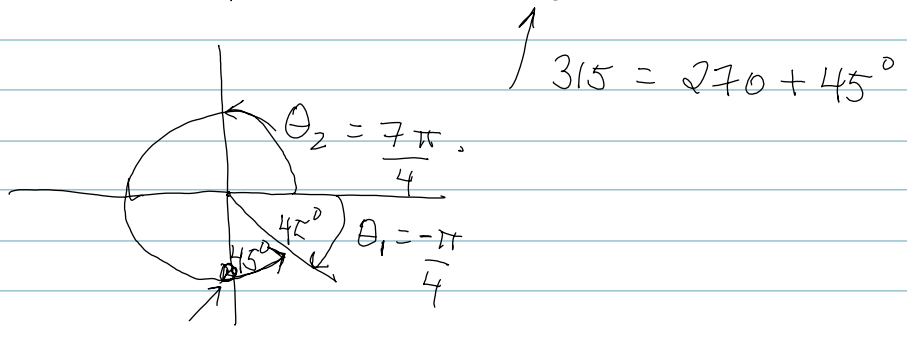 315 = 270 + 45°
θ₂ = 7π/4.
45°
θ₁ = -π/4
45°